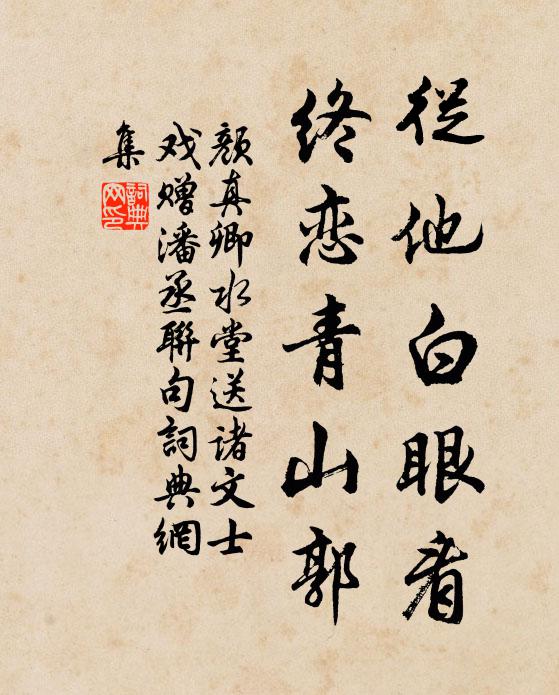 從他白眼看
終恋青山郭
顏真卿水堂送诸文士
戏赠潘丞聯句詞典網
集
詞典网印